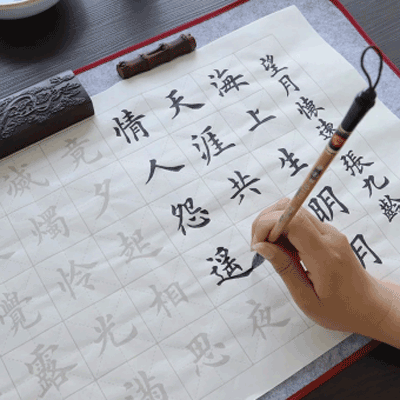 望月懷遠 張九齡
海上生明月
天涯共
情人怨遙夜
竟夕起相思
滅燭怜光滿
覺露